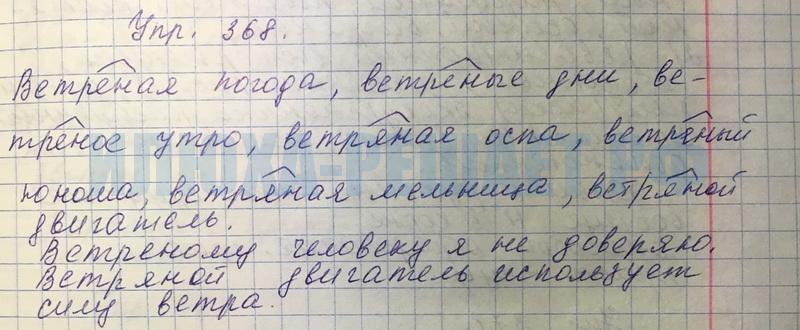 Упр. 368.
Ветреная погода, ветреные дни, ве-
треное утро, ветряная оспа, ветряный
юноша, ветряная мельница, ветряной
двигатель.
Ветреному человеку я не доверяю.
Ветряной двигатель использует
силу ветра.